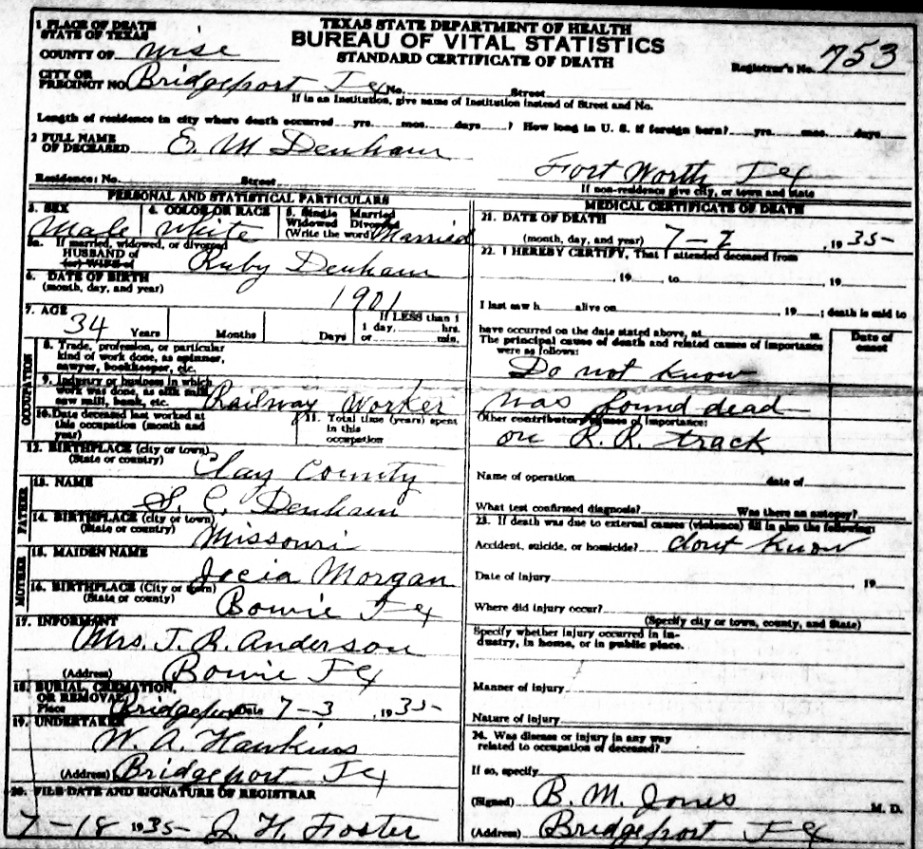 TEXAS STATE DEPARTMENT OF HEALTH
BUREAU OF VITAL STATISTICS
STANDARD CERTIFICATE OF DEATH
1 PLACE OF DEATH
STATE OF TEXAS
COUNTY OF Wise
Registrar's No. 753
CITY OR
PRECINCT NO. Bridgeport Tex No. Street
If in an Institution, give name of Institution instead of Street and No.
Length of residence in city where death occurred yrs. mos. days ? How long in U. S. if foreign born? yrs. mos. days
2 FULL NAME
OF DECEASED E. M Denham
Residence: No. Street Fort Worth Tex
If non-residence give city, or town and state
PERSONAL AND STATISTICAL PARTICULARS
3. SEX Male
4. COLOR OR RACE White
5. Single Married
Widowed Divorced
(Write the word) Married
5a. If married, widowed, or divorced
HUSBAND of
(or) WIFE of Ruby Denham
6. DATE OF BIRTH
(month, day, and year) 1901
7. AGE 34 Years Months Days
If LESS than 1
1 day, hrs.
or min.
OCCUPATION
8. Trade, profession, or particular
kind of work done, as spinner,
sawyer, bookkeeper, etc.
9. Industry or business in which
work was done, as silk mill,
saw mill, bank, etc. Railway Worker
10. Date deceased last worked at
this occupation (month and
year)
11. Total time (years) spent
in this
occupation
12. BIRTHPLACE (city or town)
(State or country) Clay County
FATHER
13. NAME S. C. Denham
14. BIRTHPLACE (city or town)
(State or country) Missouri
MOTHER
15. MAIDEN NAME Jocia Morgan
16. BIRTHPLACE (City or town)
(State or country) Bowie Tex
17. INFORMANT Mrs. J. R. Anderson
(Address) Bowie Tex
18. BURIAL, CREMATION,
OR REMOVAL
Place Bridgeport Date 7-3, 1935
19. UNDERTAKER W. A. Hawkins
(Address) Bridgeport Tex
20. FILE DATE AND SIGNATURE OF REGISTRAR
7-18 1935 J. H. Foster
MEDICAL CERTIFICATE OF DEATH
21. DATE OF DEATH
(month, day, and year) 7-2, 1935
22. I HEREBY CERTIFY, That I attended deceased from
, 19 to , 19
I last saw h alive on , 19 ; death is said to
have occurred on the date stated above, at m.
The principal cause of death and related causes of importance
were as follows:
Date of
onset
Do not know
was found dead
Other contributory causes of importance:
on R. R. track
Name of operation date of
What test confirmed diagnosis? Was there an autopsy?
23. If death was due to external causes (violence) fill in also the following:
Accident, suicide, or homicide? dont know
Date of injury , 19
Where did injury occur?
(Specify city or town, county, and State)
Specify whether injury occurred in in-
dustry, in home, or in public place.
Manner of injury
Nature of injury
24. Was disease or injury in any way
related to occupation of deceased?
If so, specify
(Signed) B. M. Jones M. D.
(Address) Bridgeport Tex